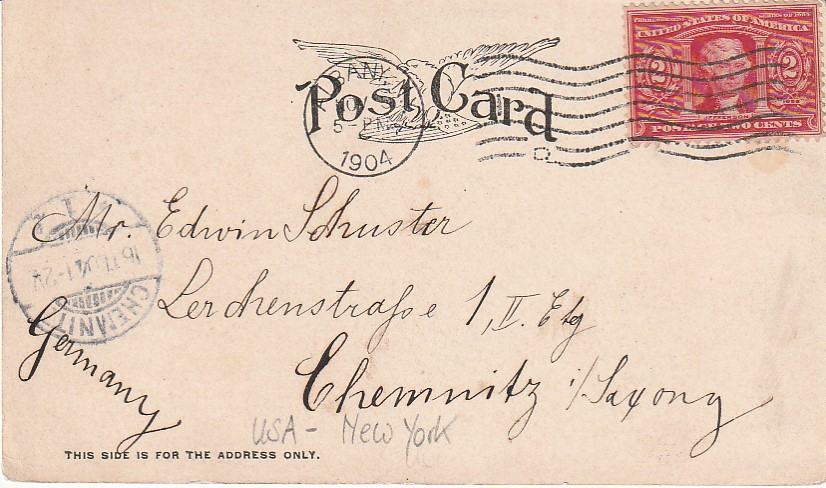 UNITED STATES OF AMERICA
2 2
JEFFERSON
POSTAGE TWO CENTS
Post Card
BANY, N.
5 - PM
1904
Mr. Edwin Schuster
Lerchenstraße 1, II. Etg
Chemnitz i/Saxony
Germany
CHEMNITZ
USA - New York
THIS SIDE IS FOR THE ADDRESS ONLY.